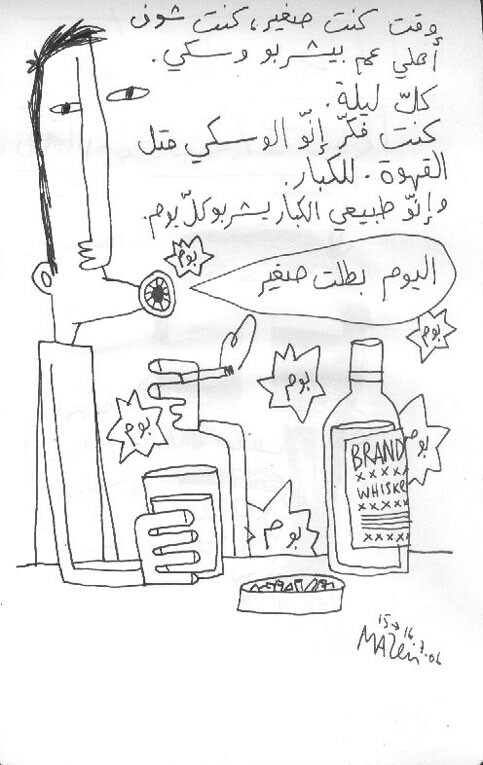 وقت كنت صغير، كنت شوف
أهلي عم بيشربو وسكي.
كلّ ليلة.
كنت فكّر إنّو الوسكي متل
القهوة. للكبار.
وإنّو طبيعي الكبار يشربو كلّ يوم.
بوم
اليوم بطلت صغير
بوم
بوم
بوم
بوم
بوم
BRAND
xxxxx
WHISKE
xxxxx
xxxxx
15→16.7.06
MAZEN